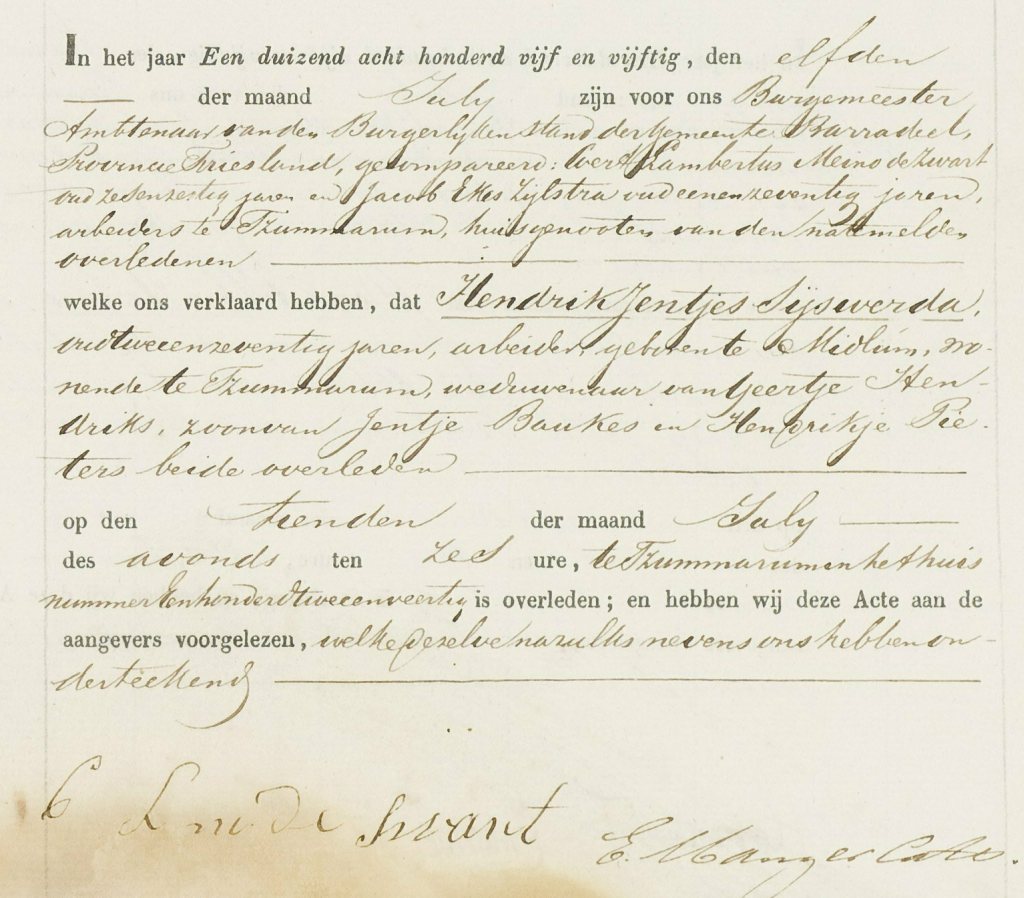 In het jaar Een duizend acht honderd vijf en vijftig, den elfden
— der maand July zijn voor ons Burgemeester
Ambtenaar van den Burgerlyken stand der Gemeente Barradeel,
Provincie Friesland, gecompareerd: Evert Lambertus Meino de Zwart
oud zesenzestig jaren en Jacob Ekes Zylstra oud eenenzeventig jaren,
arbeiders te Tzummarum, huisgenooten van den natemelden
overledenen —
welke ons verklaard hebben, dat Hendrik Jentjes Sijswerda,
oud tweeenzeventig jaren, arbeider, geboren te Midlum, wo-
nende te Tzummarum, weduwenaar van Geertje Hen-
driks, zoon van Jentje Baukes en Hendrikje Pie-
ters beide overleden —
op den tienden der maand July —
des avonds ten zes ure, te Tzummarum in het huis
nummer Eenhonderdtweeenveertig is overleden; en hebben wij deze Acte aan de
aangevers voorgelezen, welke dezelve nazulks nevens ons hebben on-
derteekend —
E L m de Swart
E. Manger Cats.